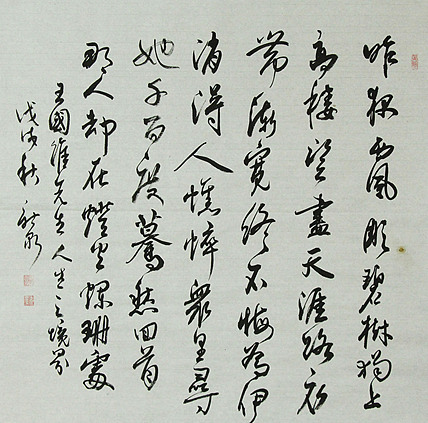 昨夜西風彫碧樹獨上
高樓望盡天涯路衣
帶漸寬終不悔為伊
消得人憔悴衆里尋
她千百度驀然回首
那人却在燈火珊處
王國維先生人生之境界
戊戌秋